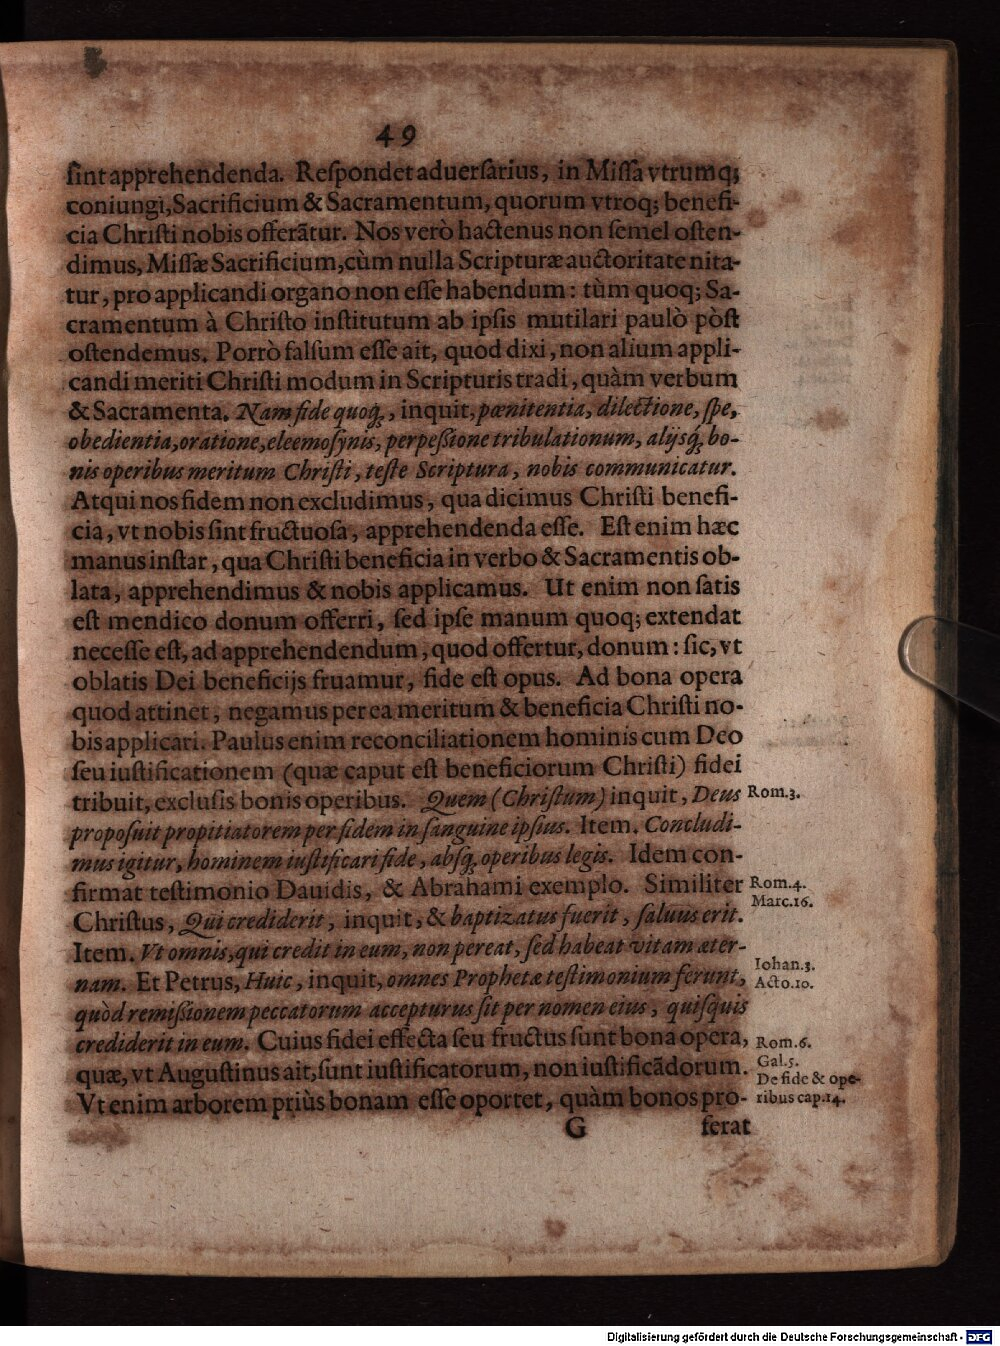 49
ſint apprehendenda. Reſpondet aduerſarius, in Miſſa vtrumq;
coniungi, Sacrificium & Sacramentum, quorum vtroq; benefi-
cia Chriſti nobis offerãtur. Nos verò hactenus non ſemel oſten-
dimus, Miſſæ Sacrificium, cùm nulla Scripturæ auctoritate nita-
tur, pro applicandi organo non eſſe habendum: tùm quoq; Sa-
cramentum à Chriſto inſtitutum ab ipſis mutilari paulò pòſt
oſtendemus. Porrò falſum eſſe ait, quod dixi, non alium appli-
candi meriti Chriſti modum in Scripturis tradi, quàm verbum
& Sacramenta. Nam fide quoq;, inquit, pænitentia, dilectione, ſpe,
obedientia, oratione, eleemoſynis, perpeßione tribulationum, alijsq; bo-
nis operibus meritum Chriſti, teſte Scriptura, nobis communicatur.
Atqui nos fidem non excludimus, qua dicimus Chriſti benefi-
cia, vt nobis ſint fructuoſa, apprehendenda eſſe. Eſt enim hæc
manus inſtar, qua Chriſti beneficia in verbo & Sacramentis ob-
lata, apprehendimus & nobis applicamus. Ut enim non ſatis
eſt mendico donum offerri, ſed ipſe manum quoq; extendat
neceſſe eſt, ad apprehendendum, quod offertur, donum: ſic, vt
oblatis Dei beneficijs fruamur, fide eſt opus. Ad bona opera
quod attinet, negamus per ea meritum & beneficia Chriſti no-
bis applicari. Paulus enim reconciliationem hominis cum Deo
ſeu iuſtificationem (quæ caput eſt beneficiorum Chriſti) fidei
tribuit, excluſis bonis operibus. Quem (Chriſtum) inquit, Deus Rom.3.
propoſuit propitiatorem per fidem in ſanguine ipſius. Item. Concludi-
mus igitur, hominem iuſtificari fide, abſq; operibus legis. Idem con-
firmat teſtimonio Dauidis, & Abrahami exemplo. Similiter Rom.4.
Marc.16.
Chriſtus, Qui crediderit, inquit, & baptizatus fuerit, ſaluus erit.
Item. Vt omnis, qui credit in eum, non pereat, ſed habeat vitam æter-
Iohan.3.
nam. Et Petrus, Huic, inquit, omnes Prophetæ teſtimonium ferunt, Acto.10.
quòd remißionem peccatorum accepturus ſit per nomen eius, quiſquis
crediderit in eum. Cuius fidei effecta ſeu fructus ſunt bona opera, Rom.6.
Gal.5.
quæ, vt Auguſtinus ait, ſunt iuſtificatorum, non iuſtificãdorum. De fide & ope-
Vt enim arborem priùs bonam eſſe oportet, quàm bonos pro- ribus cap.14.
G ferat
Digitalisierung gefördert durch die Deutsche Forschungsgemeinschaft - DFG